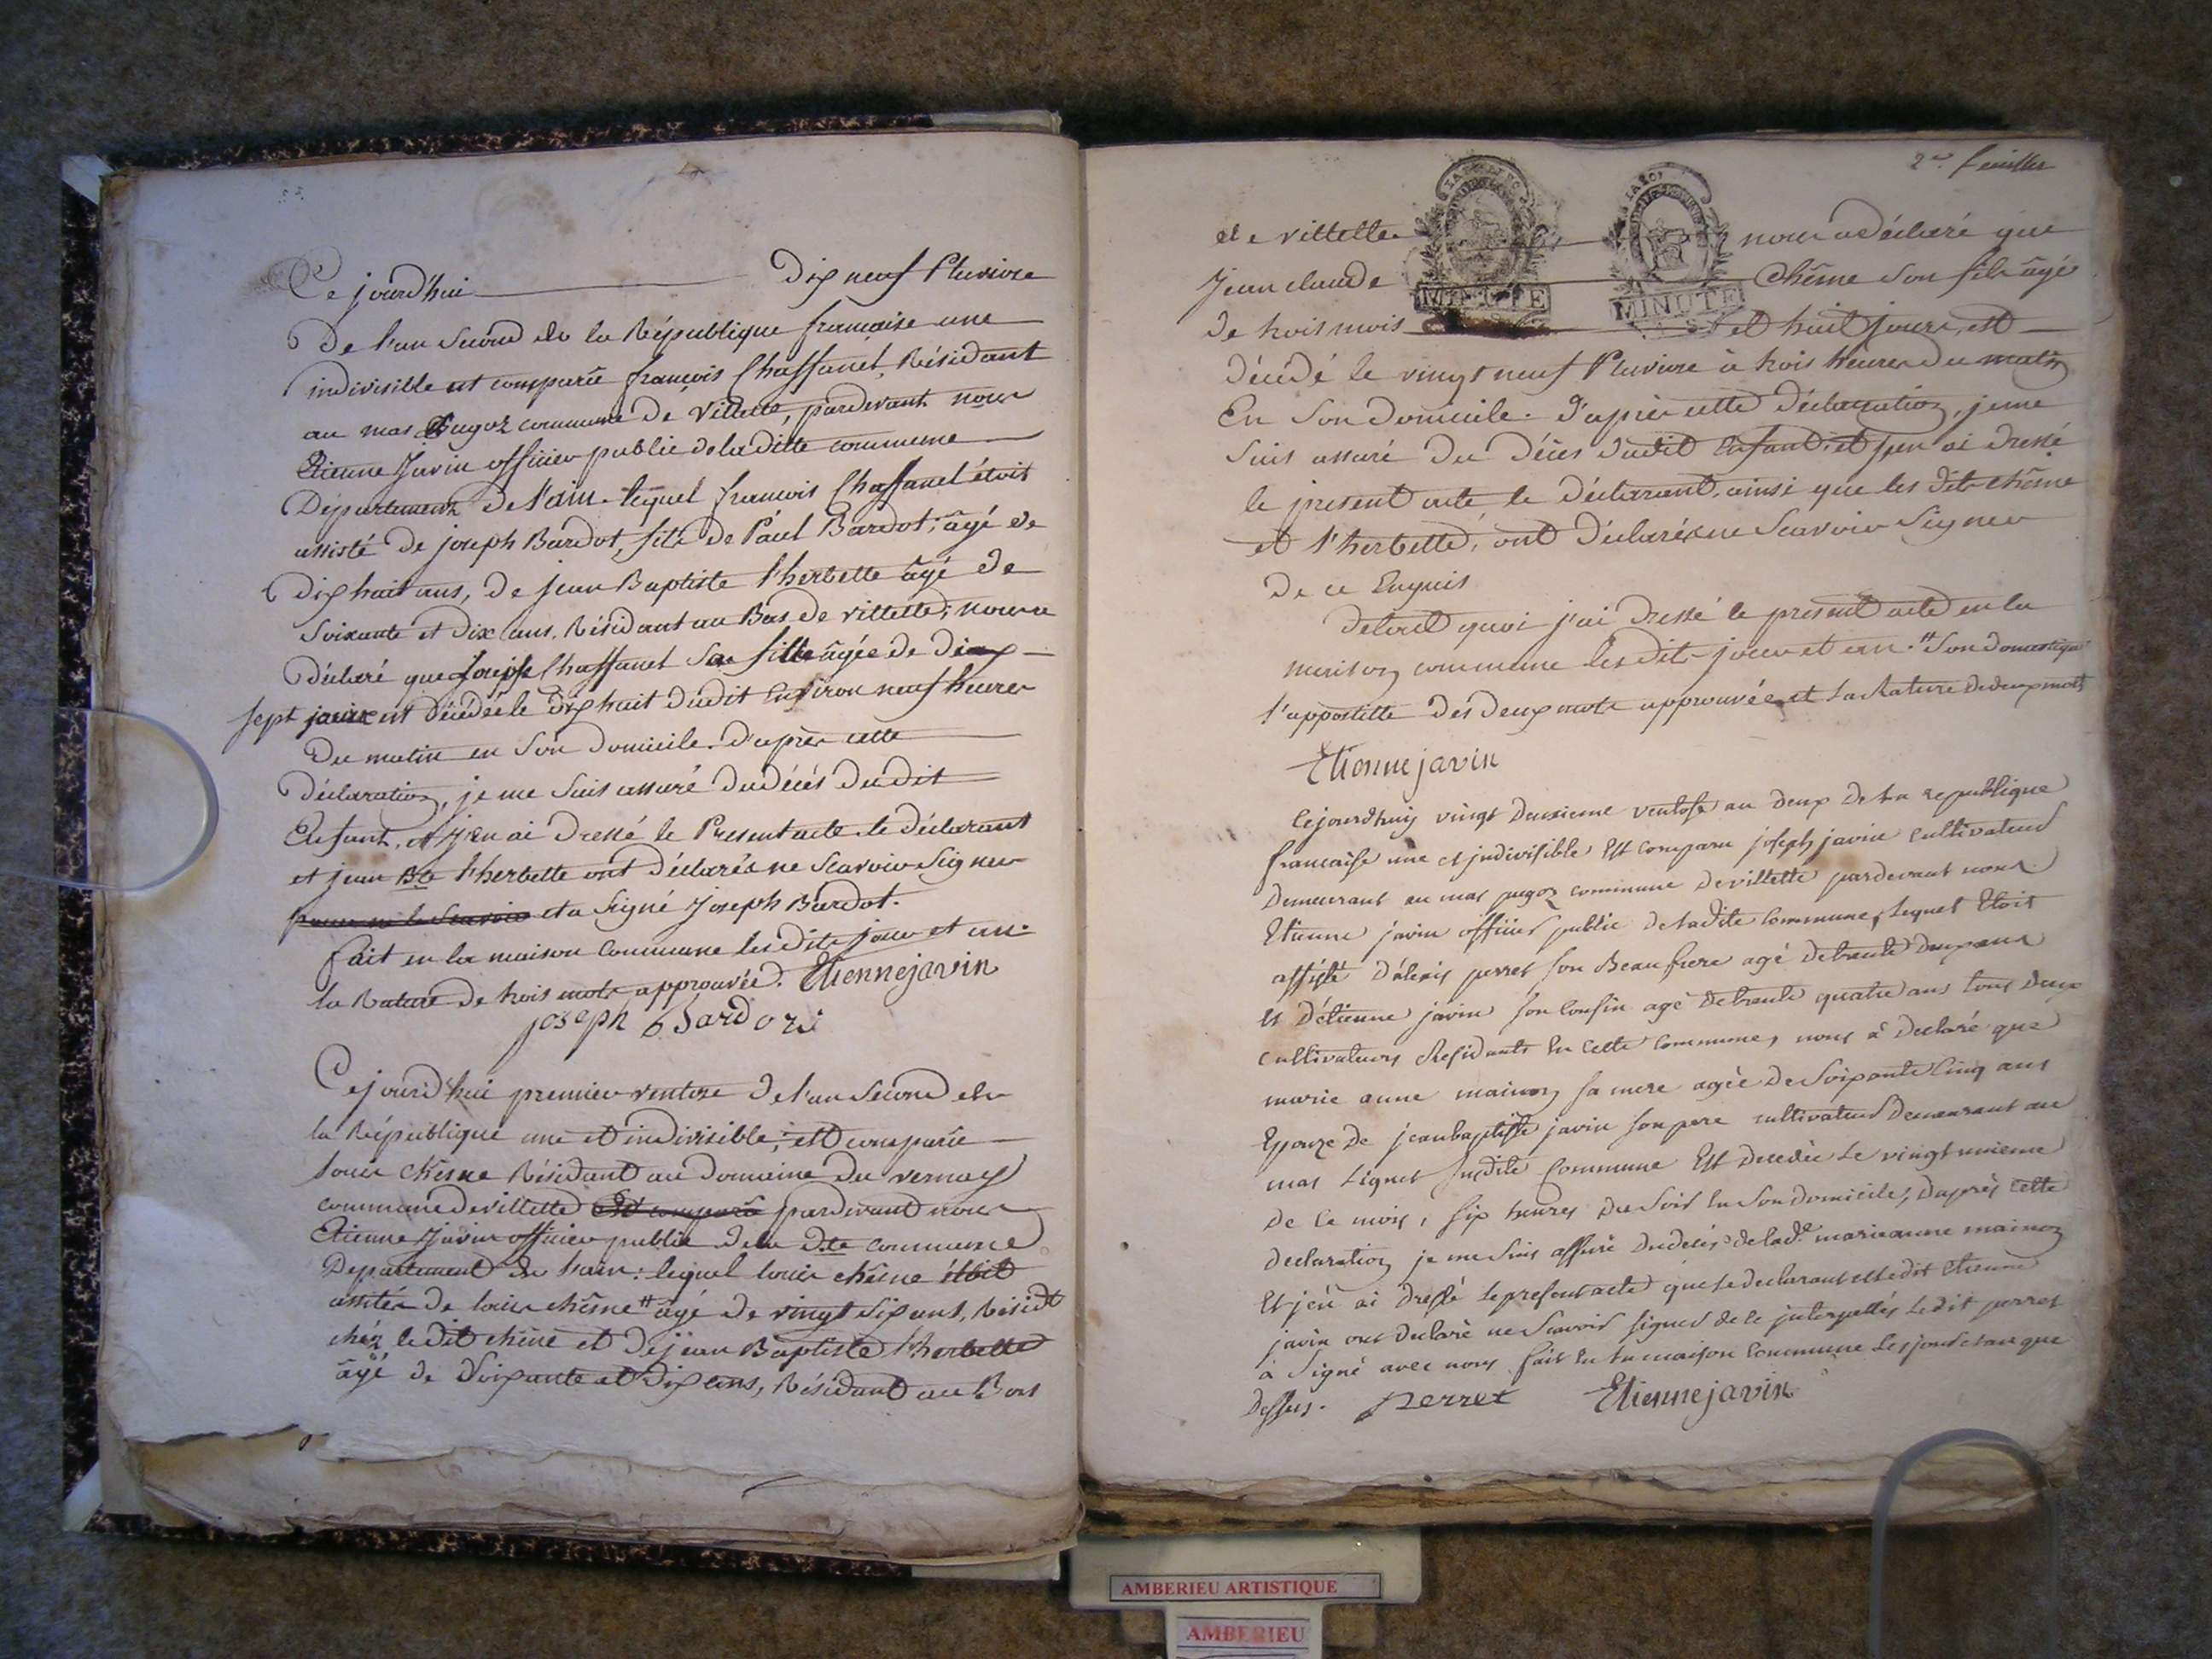 Ce jourd'hui dix neuf Pluviose
De l'an Second de la République francaise une
indivisible est comparu françois Chaffanel, Résidant
au mas commune de Villette, pardevant nous
Etienne Javin officier public de laditte commune
Département de l'ain. lequel francois Chaffanel étoit
assisté de joseph Bardot, fils de Paul Bardot, âgé de
Dix huit ans, de jean Baptiste l'herbette âgé de
Soixante et Dix ans, Résidant au Bas de villette; nous a
Déclaré que Chaffanel Sa fille âgée de dix
sept jours est décédée le dix huit dudit environ neuf heures
Du matin en Son Domicile. D'après cette
Déclaration, je me Suis assuré du décés Dudit
Enfant, et j'en ai Dressé le Present acte le déclarant
et jean Bte l'herbette ont Déclarés ne Scavoir Signer
et a Signé Joseph Bardot.
fait en la maison Commune lesdits jour et an.
la Rature de trois mots approuvée. Etiennejavin
joseph Bardot
Cejourd'hui premier ventose De l'an Second de
la République une et indivisible, est comparu
louis chêsne Résidant au Domaine du vernay
commune de villette est comparu pardevant nous
Etienne Javin officier public de la Dte commune
Departement de l'ain: lequel louis chêsne étoit
assisté de louis chêsne # âgé de vingt Six ans, Résidt
chéz ledit chêne et De jean Baptiste l'herbette
âgé de Soixante et dix ans, Résidant au Bas
2e feuillet
de villette nous a déclaré que
Jean claude chêsne Son fils âgé
De trois mois et huit jours, est
Décédé le vingt neuf Pluviose à trois heures du matin
En Son Domicile. D'après cette Déclaration, je me
Suis assuré Du Décès dudit Enfant, et j'en ai dressé
le present acte, le Déclarant, ainsi que les dits chêsne
et l'herbette, ont Déclarés ne Scavoir Signer
De ce Enquis
De tout quoi j'ai Dressé le present acte en la
maison commune lesdits jour et an. # Son domestique
l'appostille Des deux mots approuvée et la Rature de deux mots
Etienne javin
Cejourdhuy vingt deuxieme ventose an deux de la republique
francaise une et jndivisible Est comparu joseph javin cultivateur
Demeurant au mas commune de villette pardevant nous
Etienne javin officier public de ladite Commune, lequel Etoit
assisté D'alexis perret son Beaufrere agé de trente deux ans
Et D'étienne javin son Cousin agé de trente quatre ans tous deux
cultivateurs Residants En cette Commune, nous à declaré que
marie anne mainoz sa mere agée de Soixante Cinq ans
Epouze De jeanbaptiste javin son pere cultivateur Demeurant au
mas susdite Commune Est decedée Le vingt unieme
De Ce mois, six heures Du Soir En Son domicile, Daprès Cette
declaration je me Suis assuré du decés de lade. marieanne mainoz
Et jen ai dressé Le present acte que le declarant et ledit Etienne
javin ont declaré ne Scavoir signer de ce jnterpellés Ledit perret
à Signé avec nous fait En la maison Commune Les jour et an que
Dessus. Perret Etiennejavin
MINUTE
MINUTE
AMBERIEU ARTISTIQUE
AMBERIEU